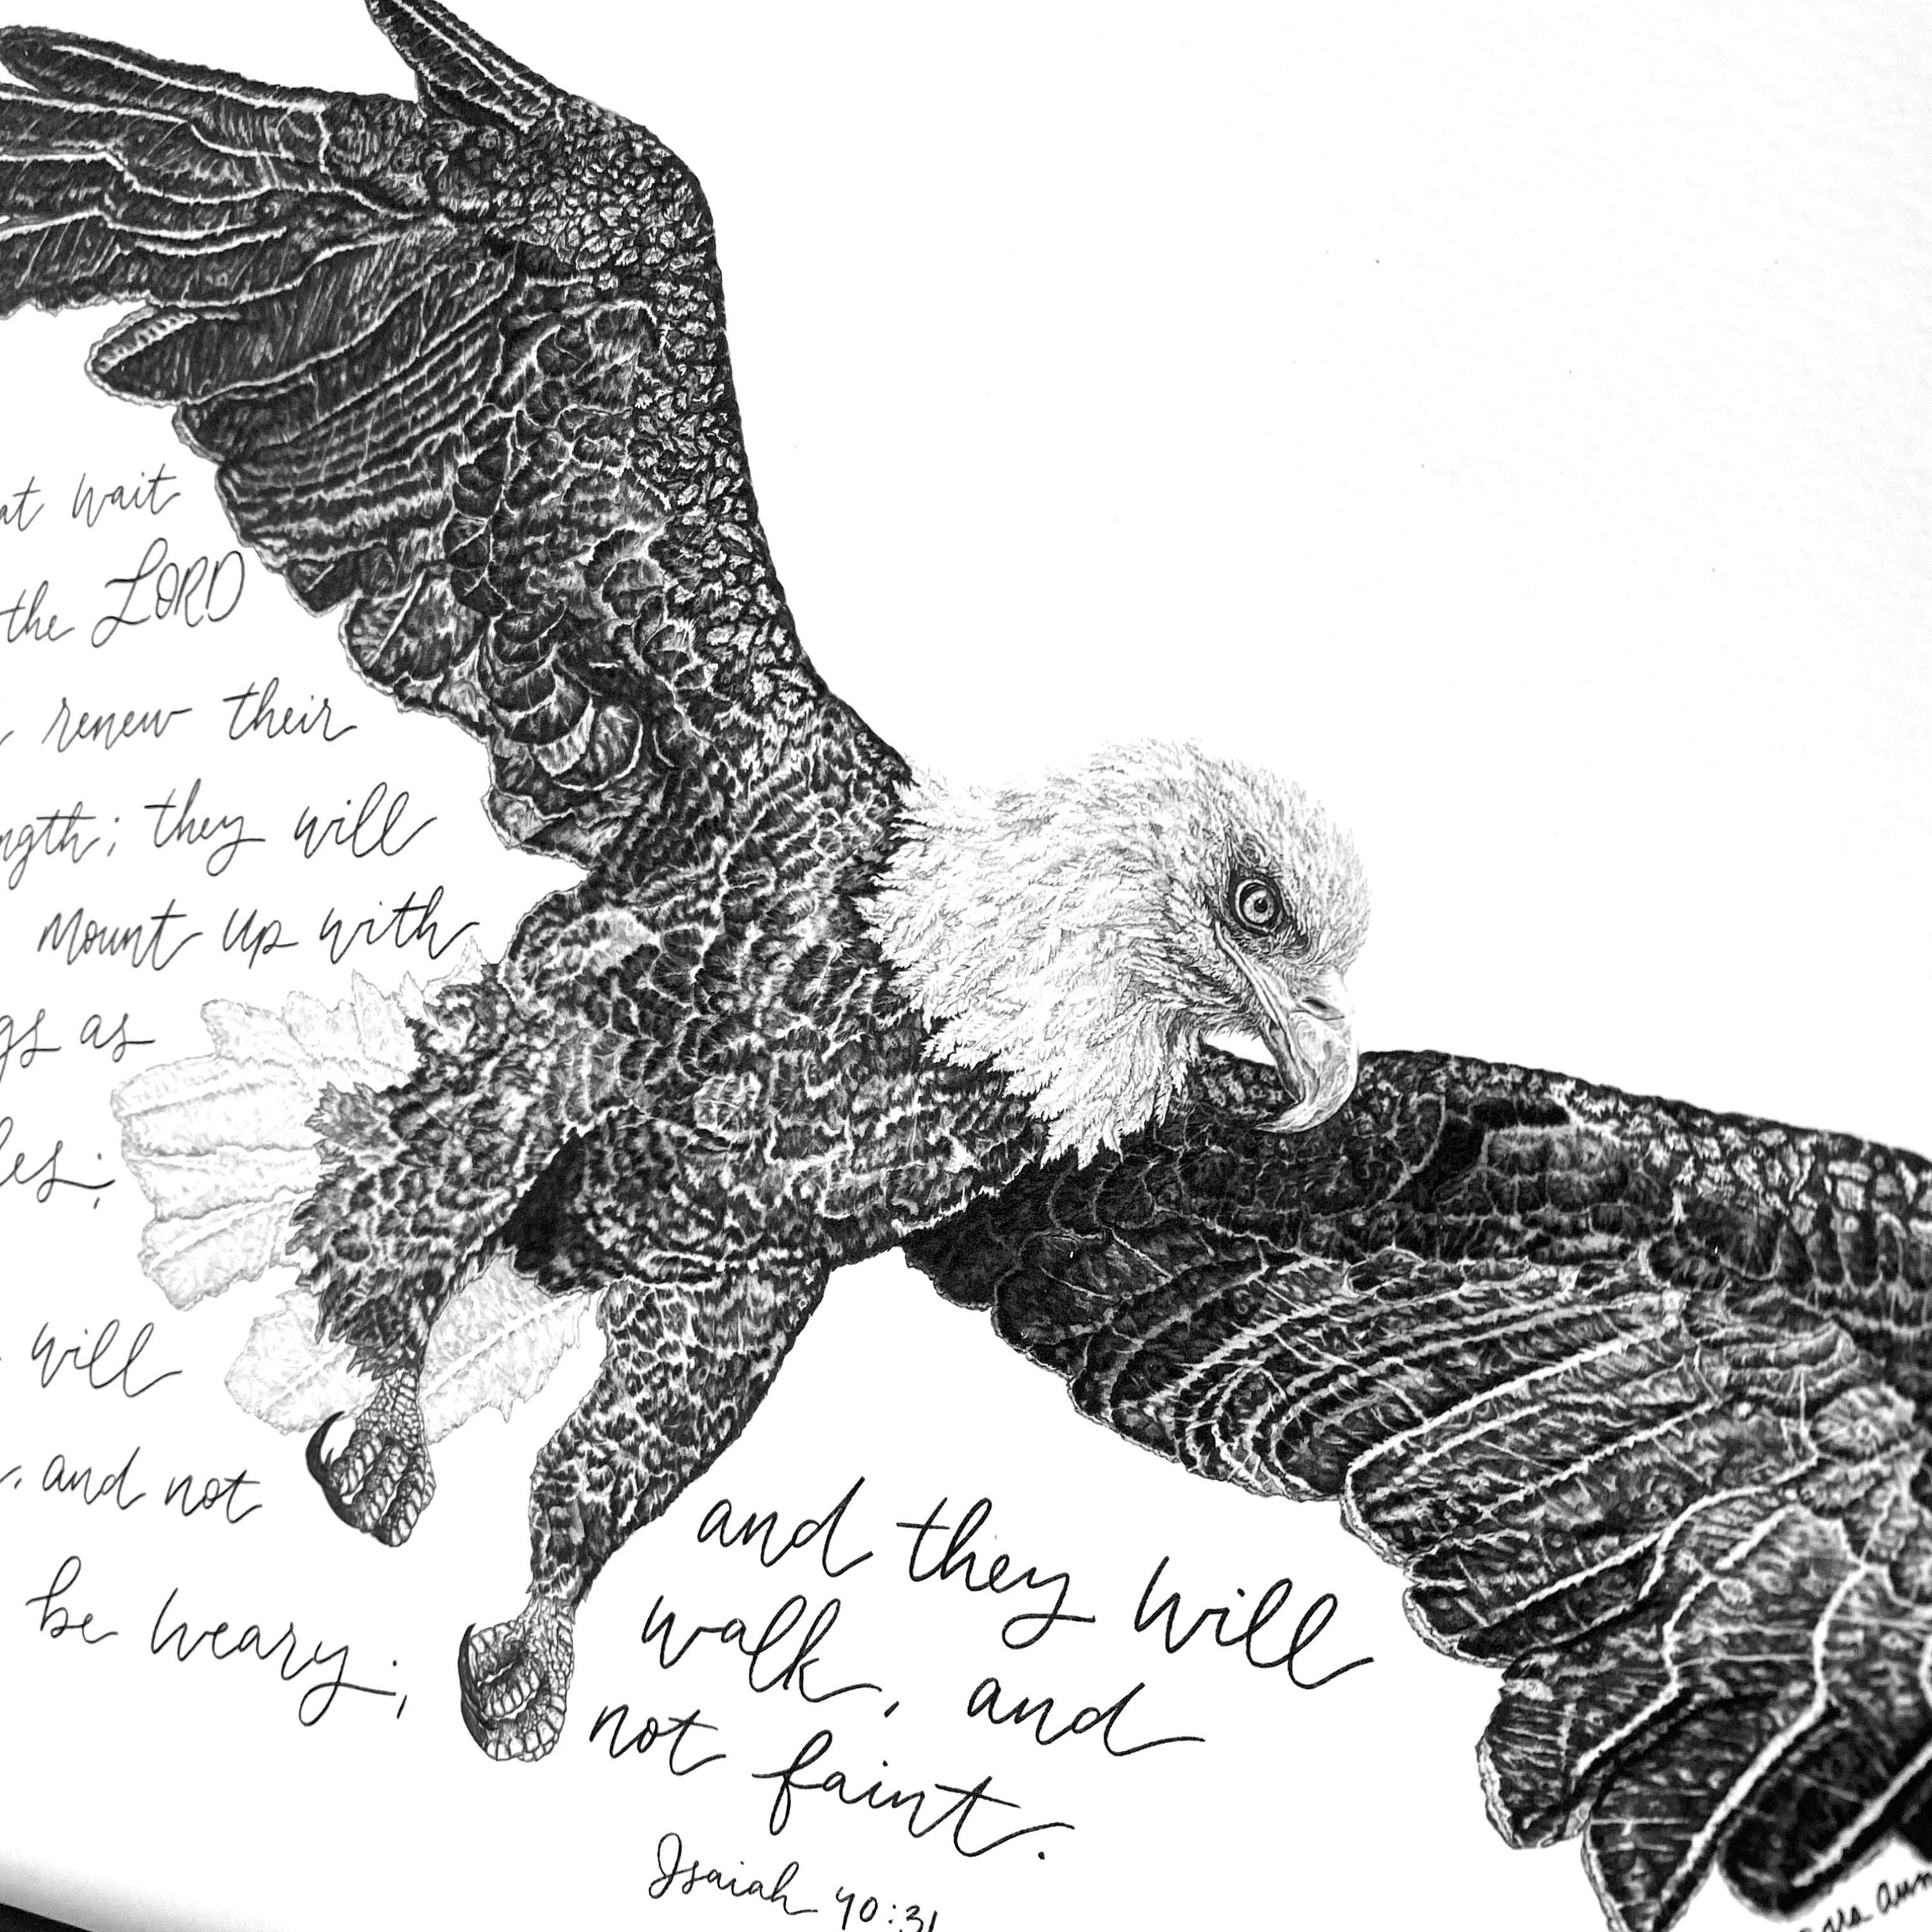 wait
the LORD
renew their
they will
mount up with
as
will
and not
be weary;
and they will
walk, and
not faint.
Isaiah 40:31